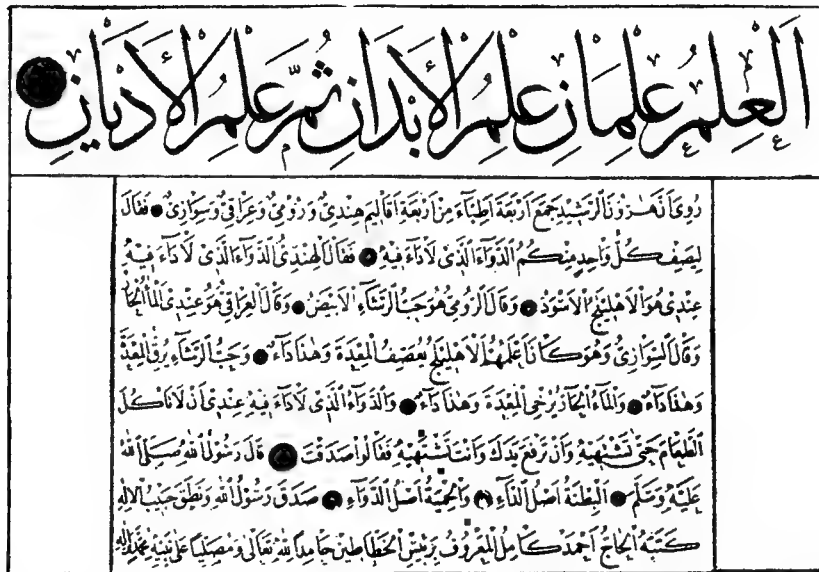 اَلْعِلْمُ عِلْمَانِ عِلْمُ الْأَبْدَانِ ثُمَّ عِلْمُ الْأَدْيَانِ
رُوِيَ اَنَّ هٰرُونَ الرَّشِيدَ جَمَعَ اَرْبَعَةَ اَطِبَّاءَ مِنْ اَرْبَعَةِ اَقَالِيمَ هِنْدِيٌّ وَرُومِيٌّ وَعِرَاقِيٌّ وَسِوَازِيٌّ فَقَالَ
لِيَصِفْ كُلُّ وَاحِدٍ مِنْكُمُ الدَّوَاءَ الَّذِى لَادَاءَ فِيهِ فَقَالَ الْهِنْدِيُّ الدَّوَاءُ الَّذِى لَادَاءَ فِيهِ
عِنْدِى هُوَ الْاَهْلِيلَجُ الْاَسْوَدُ وَقَالَ الرُّومِيُّ هُوَ حَبُّ الرَّشَاءِ الْاَبْيَضُ وَقَالَ الْعِرَاقِيُّ هُوَ عِنْدِى الْمَاءُ الْحَارُّ
وَقَالَ السِّوَازِيُّ وَهُوَ كَانَ اَعْلَمَهُمُ الْاَهْلِيلَجُ يُعَصِّفُ الْمِعْدَةَ وَهٰذَا دَاءٌ وَحَبُّ الرَّشَاءِ يُرِقُّ الْمِعْدَةَ
وَهٰذَا دَاءٌ وَالْمَاءُ الْحَارُّ يُرْخِى الْمِعْدَةَ وَهٰذَا دَاءٌ وَالدَّوَاءُ الَّذِى لَادَاءَ فِيهِ عِنْدِى اَنْ لَا تَأْكُلَ
الطَّعَامَ حَتَّى تَشْتَهِيَهُ وَاَنْ تَرْفَعَ يَدَكَ وَاَنْتَ تَشْتَهِيهِ فَقَالُوا صَدَقْتَ قَالَ رَسُولُ اللّٰهِ صَلَّى اللّٰهُ
عَلَيْهِ وَسَلَّمَ اَلْبِطْنَةُ اَصْلُ الدَّاءِ وَالْحِمْيَةُ اَصْلُ الدَّوَاءِ صَدَقَ رَسُولُ اللّٰهِ وَنَطَقَ حَبِيبُ الْاِلٰهِ
كَتَبَهُ الْحَاجُّ اَحْمَدْ كَامِلُ الْمَعْرُوفُ بِرَئِيسِ الْخَطَّاطِينَ حَامِدًا لِلّٰهِ تَعَالٰى وَمُصَلِّيًا عَلٰى نَبِيِّهِ مُحَمَّدٍ وَاٰلِهِ